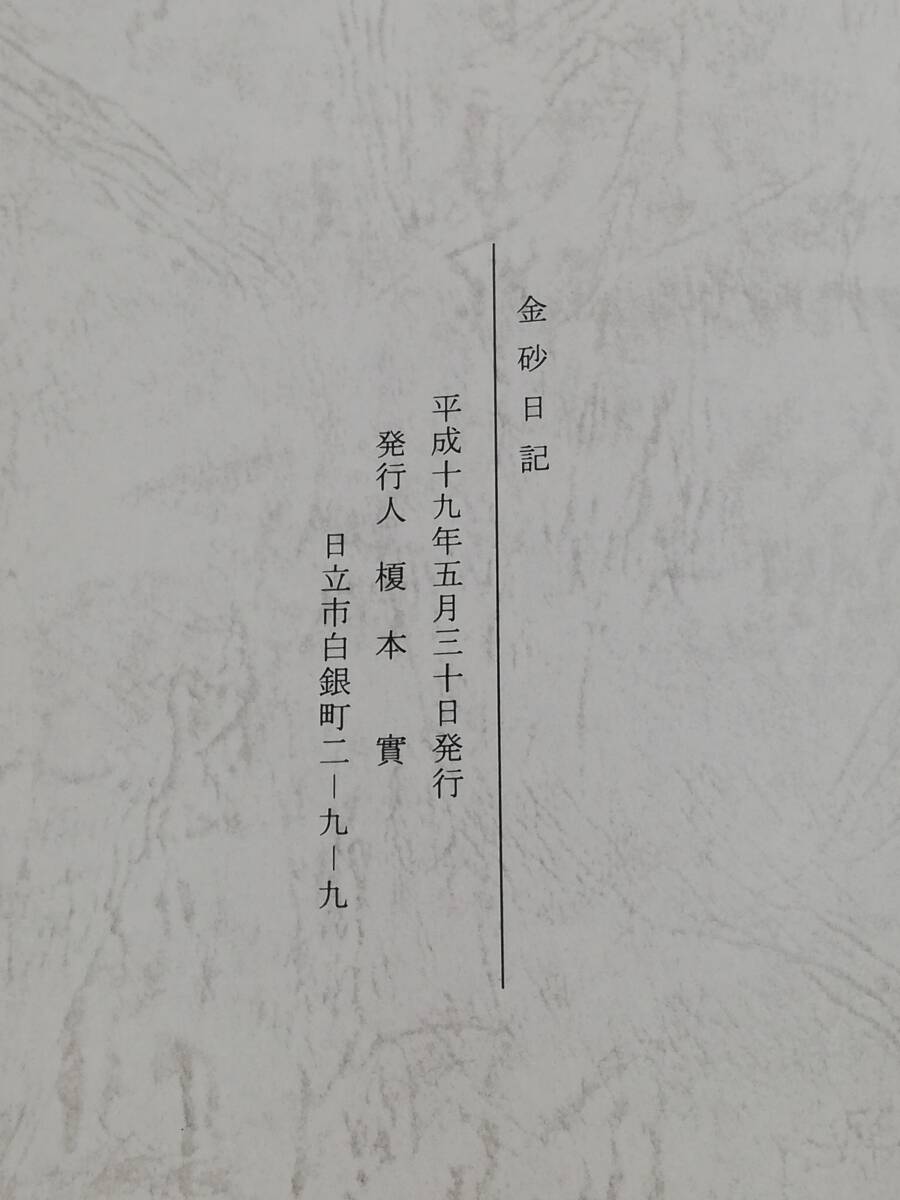 金砂日記
平成十九年五月三十日発行
発行人 榎本 實
日立市白銀町二－九－九